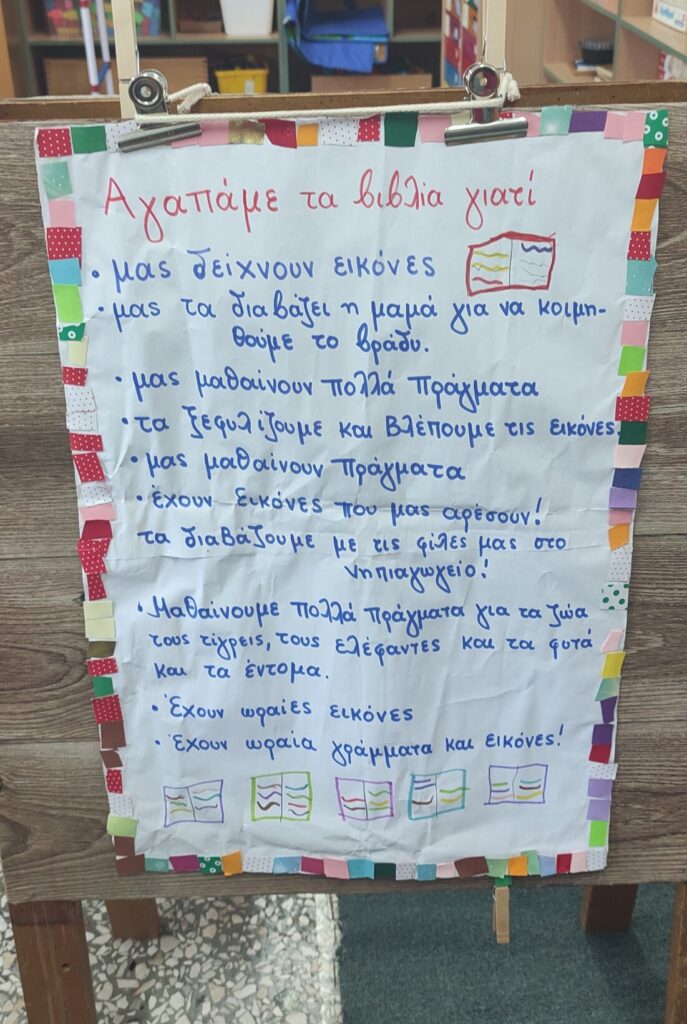 Αγαπάμε τα βιβλία γιατί
• μας δείχνουν εικόνες
• μας τα διαβάζει η μαμά για να κοιμη-
θούμε το βράδυ.
• μας μαθαίνουν πολλά πράγματα
• τα ξεφυλίζουμε και βλέπουμε τις εικόνες.
• μας μαθαίνουν πράγματα
• έχουν εικόνες που μας αρέσουν!
τα διαβάζουμε με τις φίλες μας στο
νηπιαγωγείο!
• Μαθαίνουμε πολλά πράγματα για τα ζώα
τους τίγρεις, τους ελέφαντες και τα φυτά
και τα έντομα.
• Έχουν ωραίες εικόνες
• Έχουν ωραία γράμματα και εικόνες!